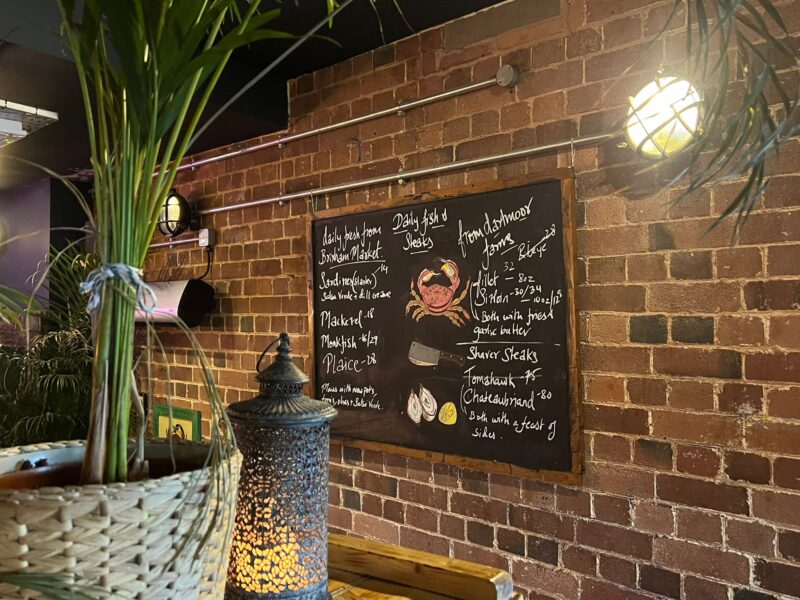 daily fresh from
Brixham Market.
Sardines (starter) 14
Salsa Verde + dill cream
Mackerel - 18
Monkfish - 16/29
Plaice - 28
Plaice with new pots,
Salsa Verde.
Daily fish &
Steaks
from dartmoor
farms
Ribeye 28
fillet 32 - 8oz
Sirloin - 30/34 - 10oz/12
Both with fries &
garlic butter
Sharer Steaks
Tomahawk - 75
Chateaubriand - 80
Both with a feast of
sides.